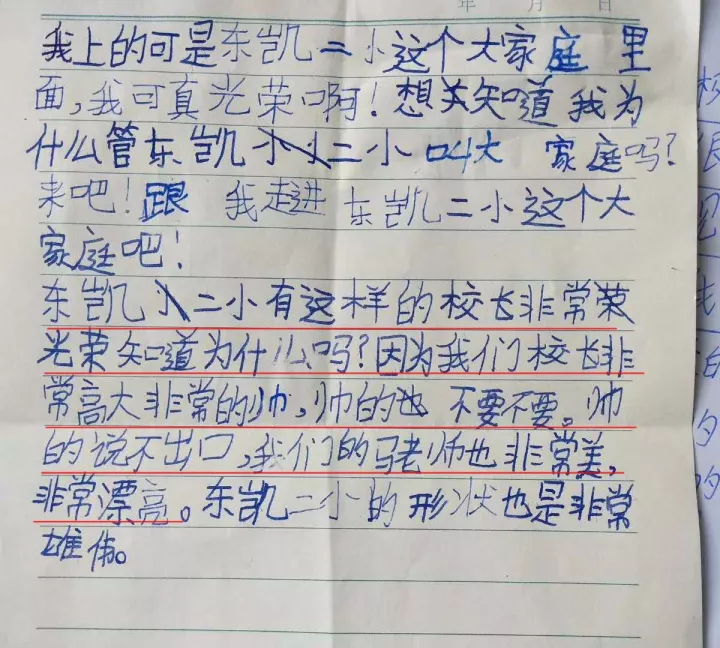 年 月 日
我上的可是东凯二小这个大家庭里
面,我可真光荣啊!想关知道我为
什么管东凯二小叫大 家庭吗?
来吧!跟 我走进东凯二小这个大
家庭吧!
东凯二小有这样的校长非常荣
光荣知道为什么吗?因为我们校长非
常高大非常的帅,帅的也 不要不要。帅
的说不出口,我们的马老师也非常美,
非常漂亮。东凯二小的形状也是非常
雄伟。